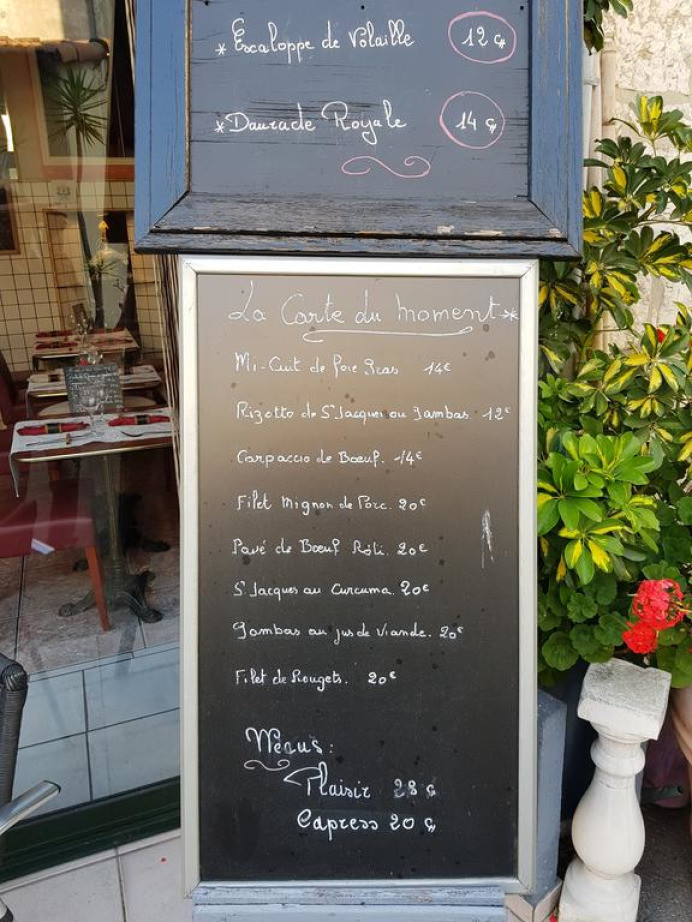 * Escaloppe de Volaille 12 €
* Daurade Royale 14 €
La Carte du moment *
Mi-Cuit de foie Gras 14€
Rizotto de St Jacques ou Gambas. 12€
Carpaccio de Bœuf. 14€
Filet Mignon de Porc. 20€
Pavé de Bœuf Rôti. 20€
St Jacques au Curcuma. 20€
Gambas au jus de Viande. 20€
Filet de Rougets. 20€
Menus:
Plaisir 28 €
Express 20 €